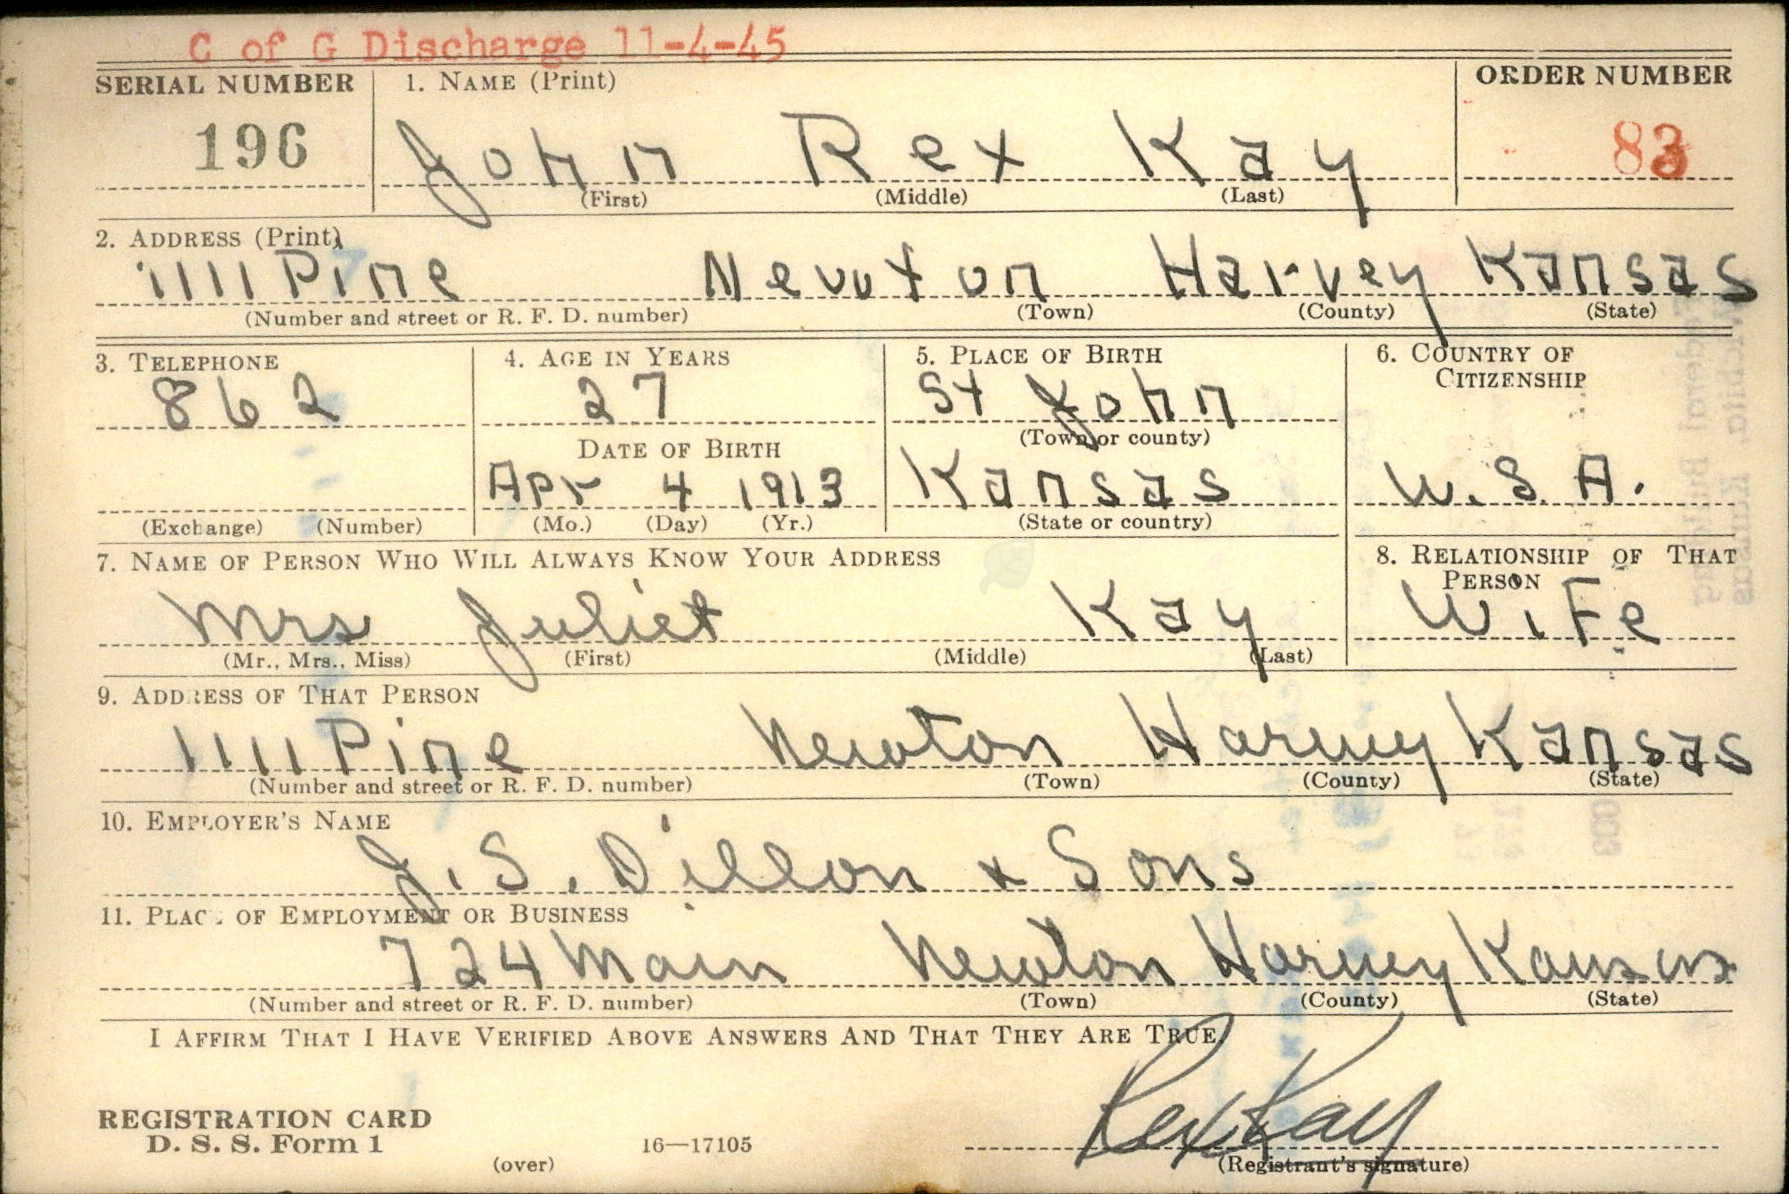 C of G Discharge 11-4-45
SERIAL NUMBER 1. NAME (Print) ORDER NUMBER
196 John Rex Kay 83
(First) (Middle) (Last)
2. ADDRESS (Print)
1111 Pine Newton Harvey Kansas
(Number and street or R. F. D. number) (Town) (County) (State)
3. TELEPHONE 4. AGE IN YEARS 5. PLACE OF BIRTH 6. COUNTRY OF CITIZENSHIP
862 27 St John
DATE OF BIRTH (Town or county)
Apr 4 1913 Kansas U.S.A.
(Exchange) (Number) (Mo.) (Day) (Yr.) (State or country)
7. NAME OF PERSON WHO WILL ALWAYS KNOW YOUR ADDRESS 8. RELATIONSHIP OF THAT PERSON
Mrs Juliet Kay Wife
(Mr., Mrs., Miss) (First) (Middle) (Last)
9. ADDRESS OF THAT PERSON
1111 Pine Newton Harvey Kansas
(Number and street or R. F. D. number) (Town) (County) (State)
10. EMPLOYER'S NAME
J. S. Dillon & Sons
11. PLACE OF EMPLOYMENT OR BUSINESS
724 Main Newton Harvey Kansas
(Number and street or R. F. D. number) (Town) (County) (State)
I AFFIRM THAT I HAVE VERIFIED ABOVE ANSWERS AND THAT THEY ARE TRUE.
Rex Kay
REGISTRATION CARD
D. S. S. Form 1 16—17105
(over) (Registrant's signature)